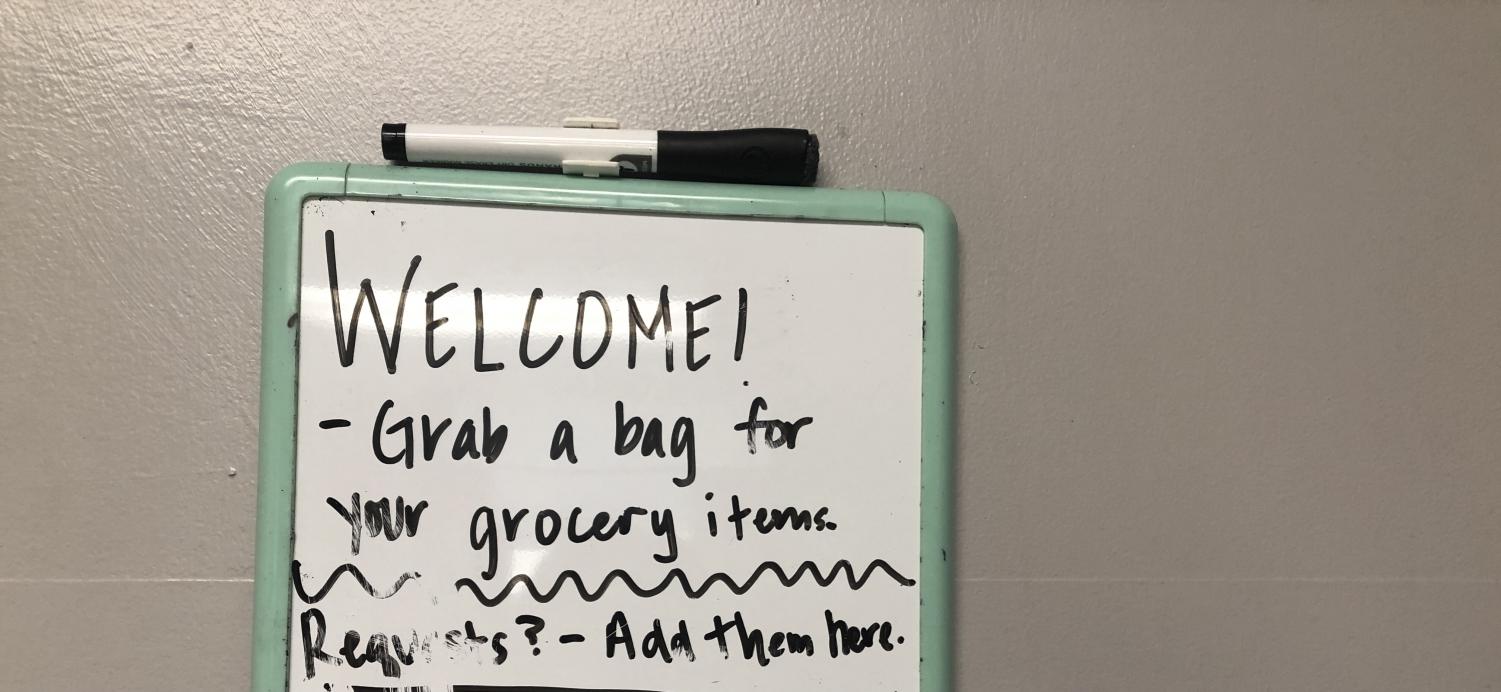 WELCOME!
- Grab a bag for
your grocery items.
Requests? - Add them here.